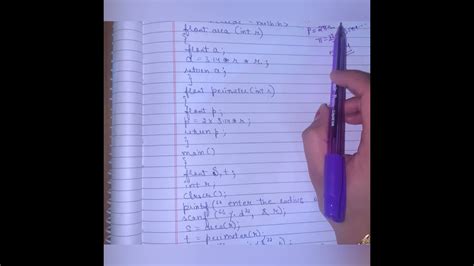 float area (int r)
{
float a;
a = 3.14 * r * r;
return a;
}
float perimeter (int r)
{
float p;
p = 2 * 3.14 * r;
return p;
}
main()
{
float s, t;
int r;
clrscr();
printf(" enter the radius
scanf("%d", & r);
s = area(r);
t = perimeter(r);